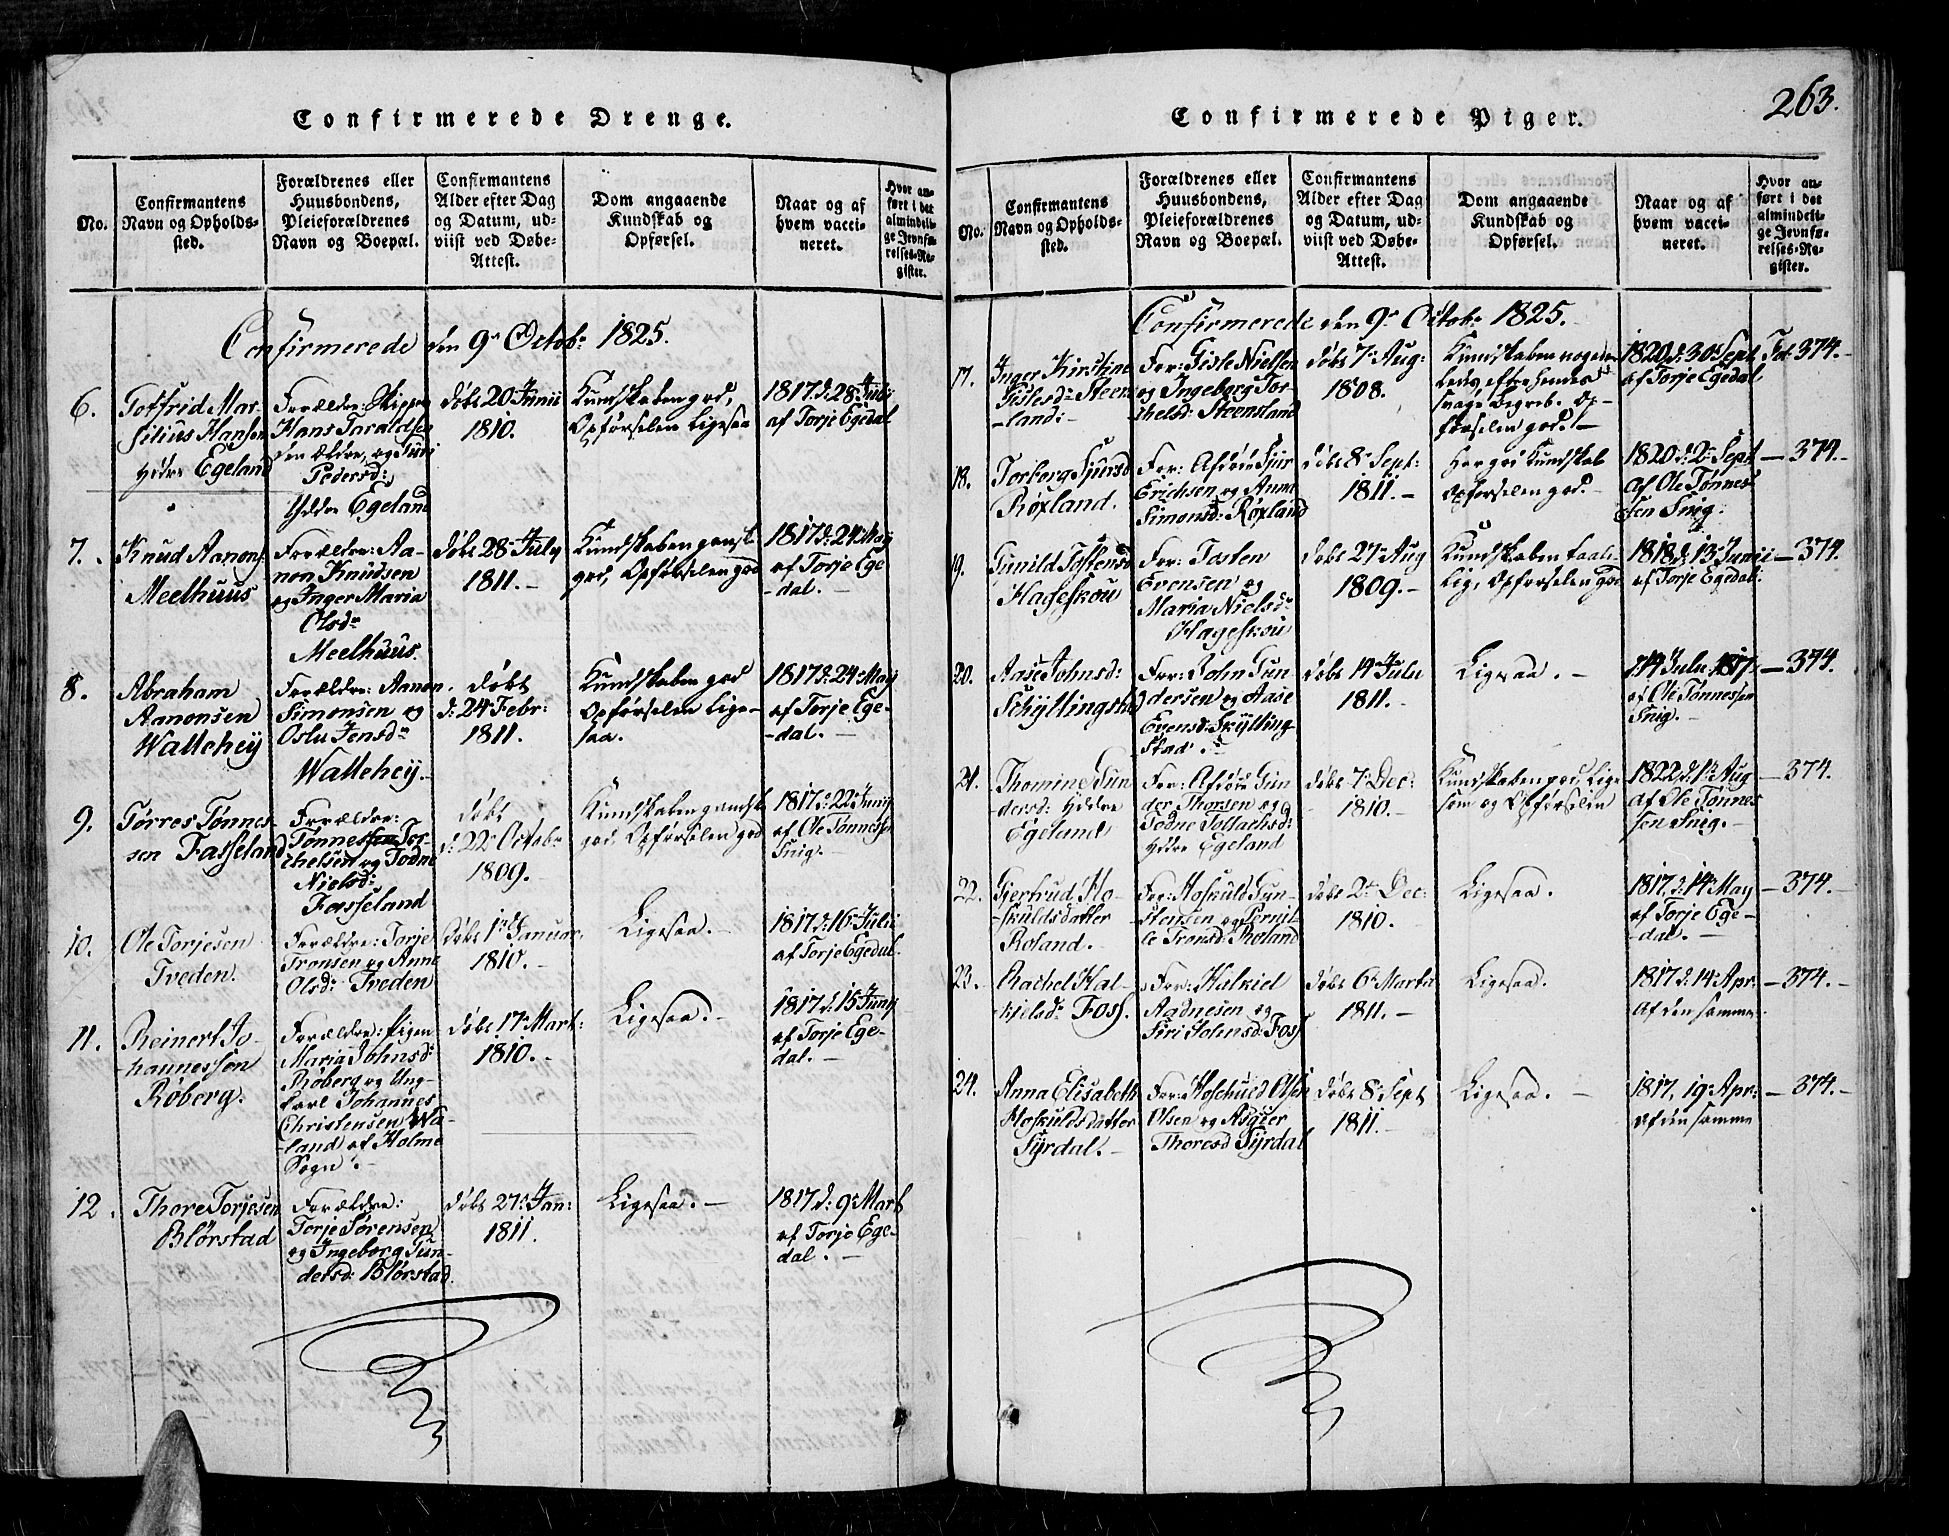 263.
Confirmerede Drenge.
No.
Confirmantens
Navn og Opholds-
sted.
Forældrenes eller
Huusbondens,
Pleieforældrenes
Navn og Boepæl.
Confirmantens
Alder efter Dag
og Datum, ud-
viist ved Døbe-
Attest.
Dom angaaende
Kundskab og
Opførsel.
Naar og af
hvem vacci-
neret.
Hvor an-
ført i det
almindeli-
ge Jevnfø-
relses-Re-
gister.
Confirmerede den 9de Octobr: 1825.
6.
Gotfrid Mar-
silius Hansen
Ydre Egeland
Forældre: Skipper
Hans Taraldsen
den Ældre, og Turi
Pedersd:
Ydre Egeland
døbt 20 Junii
1810.
Kundskaben god,
Opførselen Ligesaa
1817 d: 28 Juli
af Torje Egedal
7.
Knud Aanons:
Meelhuus
Forældre: Aa-
non Knudsen
og Inger Maria
Olsdr
Meelhuus.
døbt 28 July
1811.-
Kundskaben gansk
god, Opførselen god
1817 d: 24 May
af Torje Ege
-dal.-
8.
Abraham
Aanonsen
Wattehey
Forældre: Aanon
Simonsen og
Oslu Jensdr
Wattehey.
døbt
d: 24 Febr:
1811.
Kundskaben god
Opførselen lige-
saa.
1817 d: 24 May
af Torje Ege-
-dal.-
9.
Tørres Tønnes-
sen Fasseland
Forældre:
Tønnessen Tor-
chelsen og Todne
Nielsd:
Fasseland
døbt
d: 22 Octobr
1809.
Kundskaben gandsk
god, Opførselen god
1817 d: 22 Junij
af Ole Tønnessen
Snig.-
10.
Ole Torjesen
Tveden.
Forældre: Torje
Tronsen og Anne
Olsd: Tveden
døbt 1 Januar.
1810.-
Ligesaa.-
1817 d: 16 Julii
af Torje Egedal.
11.
Reinert Jo-
hannessen
Røberg.
Forældre: Pigen
Maria Johnsd:
Røberg og Ung-
karl Johannes
Christensen Wa-
-land af Holme
Sogn.-
døbt 17 Mart:
1810.-
Ligesaa.-
1817 d: 15 Juny
af Torje Ege-
dal.-
12.
Thore Torjesen
Blørstad
Forældre:
Torje Sørensen
og Ingeborg Gun-
dersd: Blørstad.
døbt 27 Jan:
1811.
Ligesaa.-
1817 d: 9 Mart
af Torje Ege-
dal.-
Confirmerede Piger.
No.
Confirmantens
Navn og Opholds-
sted.
Forældrenes eller
Huusbondens,
Pleieforældrenes
Navn og Boepæl.
Confirmantens
Alder efter Dag
og Datum, ud-
viist ved Døbe-
Attest.
Dom angaaende
Kundskab og
Opførsel.
Naar og af
hvem vacci-
neret.
Hvor an-
ført i det
almindeli-
ge Jevnfø-
relses-Re-
gister.
Confirmerede den 9de Octobr: 1825.
17.
Inger Kirstine
Gislesdr Steens
-land:
For: Gisle Nielsen
og Ingeborg Tor-
kelsd: Steensland
døbt 7 Aug:
1808.
Kundskaben nogen-
ledes, efter hendes
svage Begreb. Op-
førselen god.-
1820 d: 30 Sept
af Torje Egedal
Fol. 374.-
18.
Torborg Sjursd
Røxland.
For: Afdøde Sjur
Erichsen og Anna
Simonsd: Røxland
døbt 8 Sept:
1811.-
Har god Kundskab
Opførselen god.-
1820 d: 2 Sept
af Ole Tønnes
sen Snig:
- 374.-
19.
Gunild Tostensd
Hageskou
For: Tosten
Evensen og
Maria Nielsdr
Hageskou
døbt 27 Aug
1809.-
Kundskaben taale-
lig, Opførselen god
1818 d: 13 Junii
af Torje Egedal:
- 374.
20.
Aase Johnsd:
Schyllingsta
For: John Gun-
dersen og Aase
Evensd: Skylling-
stad.-
døbt 14 Julii
1811.-
Ligesaa.-
14 Julii 1817.
af Ole Tønnessen
Snig.-
- 374.
21.
Thomine Gun
dersd: Ydre
Egeland
For: Afdøde Gun
der Thorsen og
Todne Tollachsd:
Ydre Egeland
døbt 7 Dec:
1810.-
Kundskaben god, lige
som og Opførselen
1822 d: 1 Aug
af Ole Tønnes
sen Snig.-
- 374.
22.
Gjertrud Ho-
skuldsdatter
Roland.-
For: Hoskuld Gun-
stensen og Pernil-
le Tronsd: Roland
døbt 2 Dec:
1810.-
Ligesaa.
1817. d: 14 May
af Torje Ege-
-dal.-
- 374.-
23.
Rachel Hal-
kjelsdr Foss.
For: Halkiel
Aadnesen og
Siri Johnsd: Foss
døbt 6 Martii
1811.-
Ligesaa.
1817 d: 14 Apr:
af den samme.
- 374.-
24.
Anna Elisabeth
Hoskulds datter
Syrdal.-
For: Hoschuld Olsen
Olsen og Asgier
Thoresd Syrdal
døbt 8 Sept
1811.-
Ligesaa.-
1817, 19 Apr:
af den samme
- 374.-